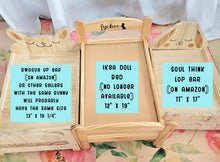 BWOGUE UP BAR
(ON AMAZON)
OR OTHER SELLERS
WITH THE SAME BUNNY
WILL PROBABLY
HAVE THE SAME SIZE
12" X 19 1/4"
IKEA DOLL
BED
(NO LONGER
AVAILABLE)
12" X 19"
SOUL THINK
LOP BAR
(ON AMAZON)
11" X 17"